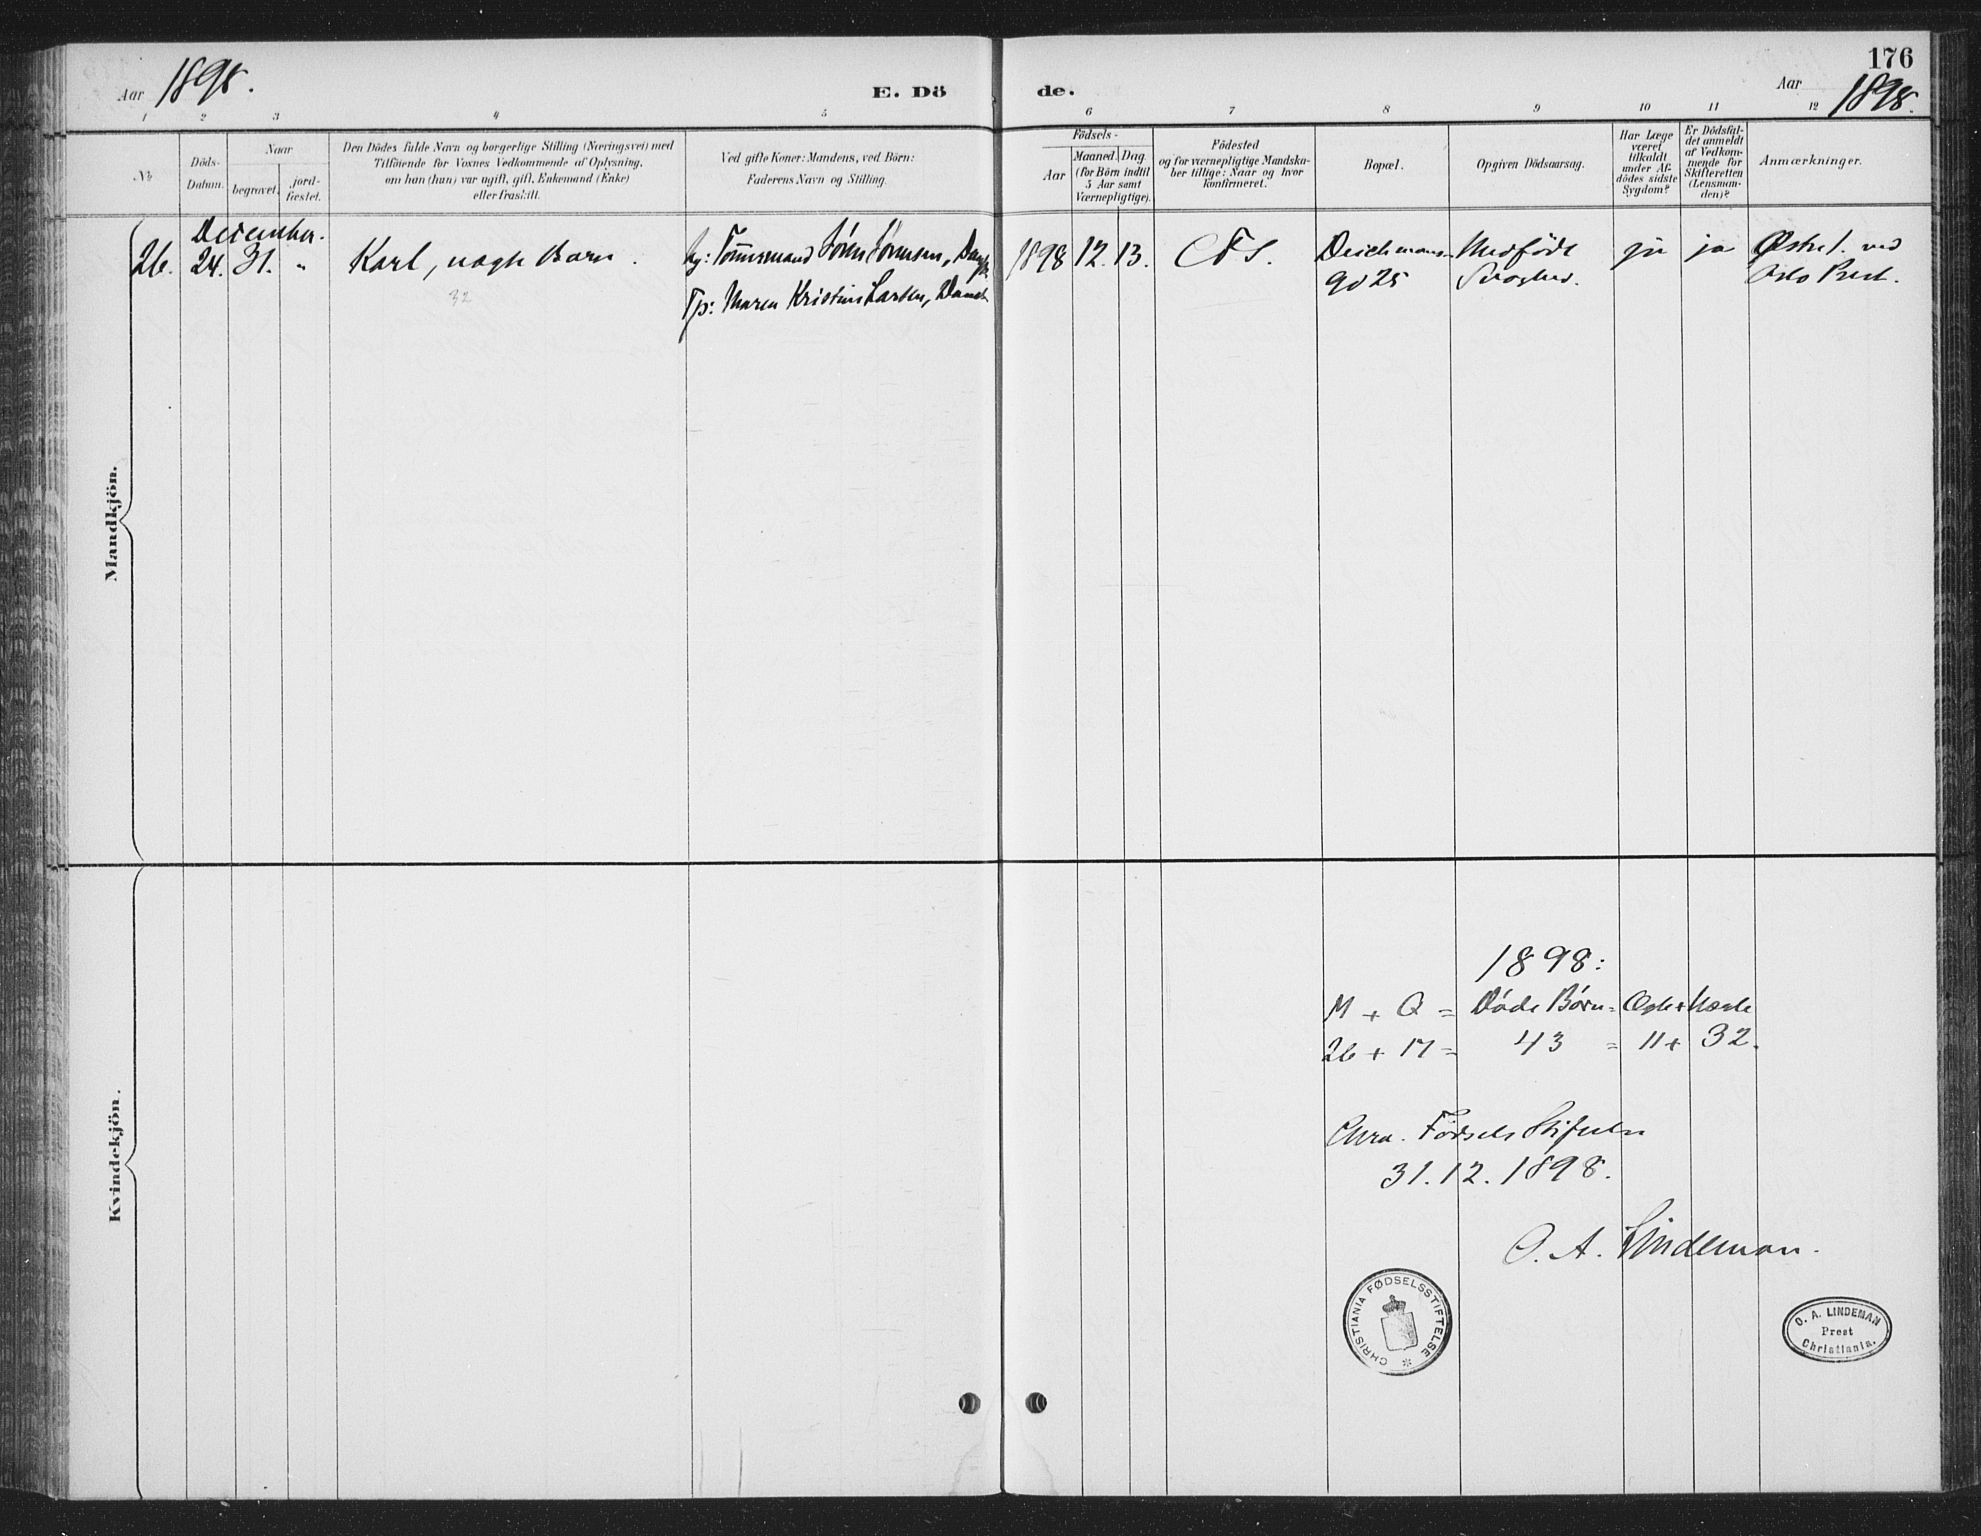 176
Aar 1898.
E. Dö
de.
Aar 1898.
1 2 3 4 5 6 7 8 9 10 11 12
No
Döds-Datum.
Naar
begravet.
jord-fæstet.
Den Dödes fulde Navn og borgerlige Stilling (Næringsvei) med
Tilföiende for Voxnes Vedkommende af Oplysning,
om han (hun) var ugift, gift, Enkemand (Enke)
eller fraskilt.
Ved gifte Koner: Mandens, ved Börn:
Faderens Navn og Stilling.
Födsels-
Aar
Maaned. Dag.
(for Börn indtil
5 Aar samt
Værnepligtige).
Födested
og for værnepligtige Mandska-
ber tillige: Naar og hvor
konfirmeret.
Bopæl.
Opgiven Dödsaarsag.
Har Læge
været
tilkaldt
under Af-
dödes sidste
Sygdom?
Er Dödsfal-
det anmeldt
af Vedkom-
mende for
Skifteretten
(Lensman-
den)?
Anmærkninger.
Mandkjön.
December.
26. 24. 31. "
Karl, uægte Barn.
32
Tømmermand Sören Sörensen,
Maren Kristine Larsen,
1898 12. 13.
CFS.
Deichmans-
gd 25
Medfödt
Svaghed.
ja
ja
Østre f. ved
Oslo Prest.
Kvindekjön.
1898:
M + Q = Døde Børn = Ægte + Uægte
26 + 17 = 43 = 11 + 32.
Chra. Fødsels Stiftelse
31.12.1898.
O. A. Lindeman.
CHRISTIANIA FØDSELSSTIFTELSE
O. A. LINDEMAN
Prest
Christiania.